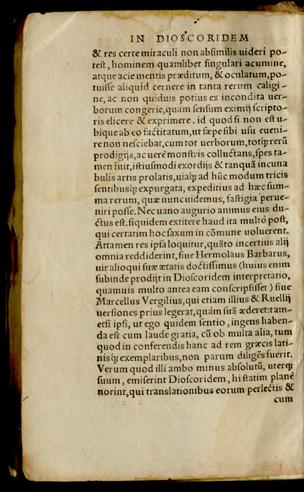 IN DIOSCORIDEM
& res certe miraculi non absimilis uideri po-
test, hominem quamlibet singulari acumine,
atque acie mentis præditum, & oculatum, po-
tuisse aliquid cernere in tanta rerum caligi-
ne, ac non quiduis potius ex incondita uer-
borum congerie, quam sensum eximij scripto-
ris elicere & exprimere. id quod si non est u-
bique ab eo factitatum, ut sæpe sibi usu eueni-
re non nesciebat, cum tot uerborum, totq́; rerū
prodigijs, ac uere mōnstris colluctans, spes ta-
men fuit, istiusmodi exordijs & tanquā incuna
bulis artis prolatis, uiaq́; ad hūc modum tricis
sentibusq́; expurgata, expeditius ad hæc sum-
ma rerum, quæ nunc uidemus, fastigia perue-
niri posse. Nec uano augurio animus eius du-
ctus est. siquidem extitere haud ita multo pòst,
qui certatim hoc saxum in cōmune uoluerent.
Attamen res ipsa loquitur, quāto incertius alij
omnia reddiderint, siue Hermolaus Barbarus,
uir alioqui suæ ætatis doctissimus (huius enim
subinde prodijt in Dioscoridem interpretatio,
quamuis multo antea eam conscripsisset) siue
Marcellus Vergilius, qui etiam illius & Ruellij
uersiones prius legerat, quàm suā æderet: tam-
etsi ipsi, ut ego quidem sentio, ingens haben-
da est cum laude gratia, cū ob multa alia, tum
quod in conferendis hanc ad rem græcis lati-
nisq́; exemplaribus, non parum diligēs fuerit.
Verum quod illi ambo minus absolutū, uterq́;
suum, emiserint Dioscoridem, hi statim planè
norint, qui translationibus eorum perlectis &
cum